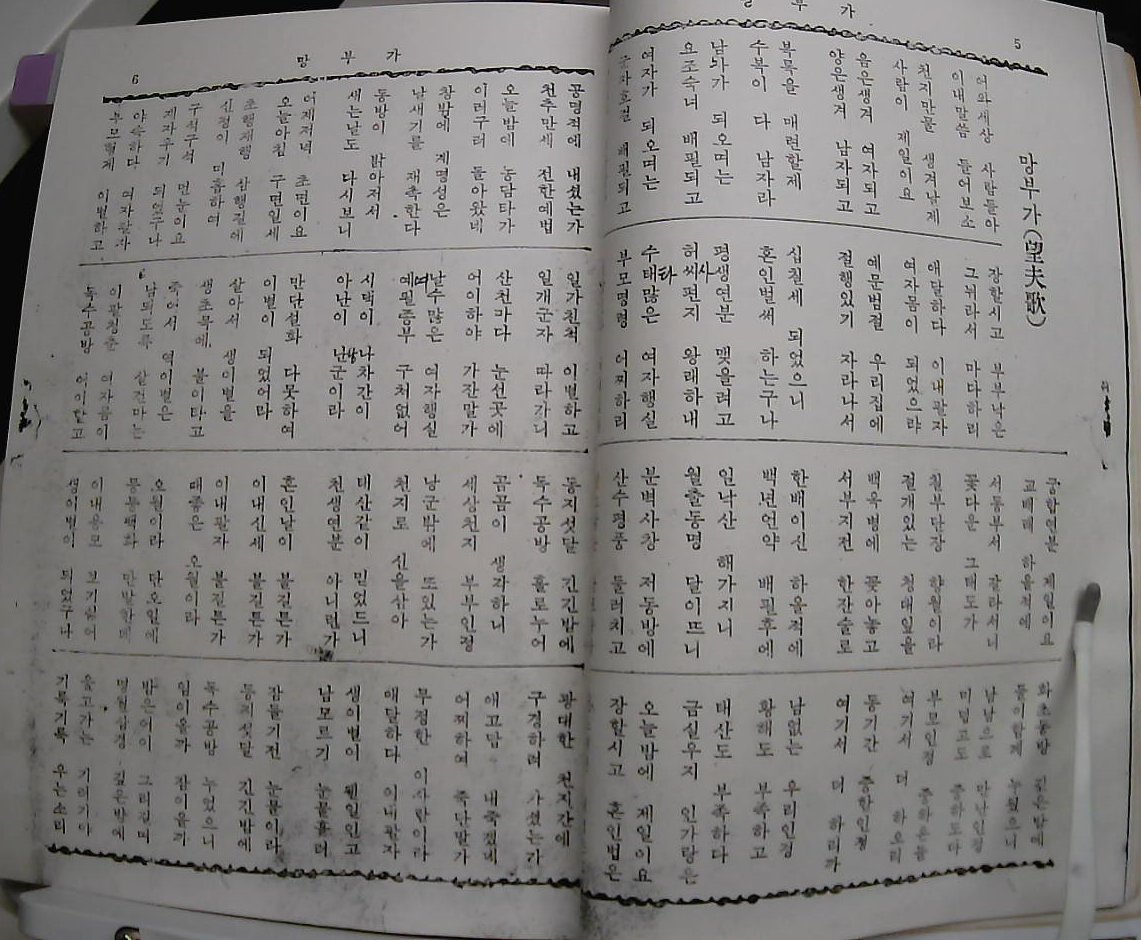 망부가
5
망부가(望夫歌)
여와세상 사람들아
이내말씀 들어보소
천지만물 생겨날제
사람이 제일이요
음은생겨 여자되고
양은생겨 남자되고
부목을 매련할제
수복이 다 남자라
남자가 되오며는
요조숙녀 배필되고
여자가 되오며는
군자호걸 배필되고
장할시고 부부낙은
그뉘라서 마다하리
애달하다 이내팔자
여자몸이 되었으랴
예문범절 우리집에
절행있기 자라나서
십칠세 되었으니
혼인벌써 하는구나
평생연분 맺을려고
허씨사편지 왕래하내
수태타많은 여자행실
부모명령 어찌하리
궁합연분 제일이요
하올적에
서동부서 갈라서니
꽃다운 그태도가
칠부단장 향월이라
절개있는 청대잎을
백옥병에 꽂아놓고
서부지전 한잔술로
한배이신 하올적에
백년언약 배필후에
일낙산 해가지니
월출동명 달이뜨니
분벽사창 저동방에
산수평풍 둘러치고
화초동방 깊은밤에
둘이함께 누웠으니
남남으로 만난인정
미덥고도 중하도다
부모인정 중하온들
여기서 더 하오리
동기간 중한인정
여기서 더 하리라
남없는 우리인정
황해도 부족하고
태산도 부족하다
금실우지 인가랑은
오늘밤에 제일이요
장할시고 혼인법은
망부가
6
공명적에 내셨는가
천추만세 전한예법
오늘밤에 농담타가
이러구러 돌아왔네
창밖에 계명성은
날새기를 재촉한다
동방이 밝아저서
세는날도 다시보니
어제저녁 초면이요
오늘아침 구면일세
초행재행 삼행절에
신정이 미흡하여
구석구석 면눈이고
제자주기 되었구나
야속하다 여자팔자
부모형제 이별하고
일가친척 이별하고
일개군자 따라가니
산천마다 눈선곳에
어이하야 가잔말가
날수많은 여자행실
예여필종부 구처없어
시댁이 나차간이
아난이 난방군이라
만단설화 다못하여
이별이 되었어라
살아서 생이별을
생초목에 불이타고
죽어서 영이별은
남의도록 살건마는
이팔청춘 여자몸이
독수공방 어이할고
동지섯달 긴긴밤에
독수공방 홀로누어
곰곰이 생각하니
세상천지 부부인정
낭군밖에 또있는가
천지로 신을삼아
태산같이 믿었드니
천생연분 아니런가
혼인날이 불길튼가
이내신세 불길튼가
이내팔자 불길튼가
때좋은 오월이라
오월이라 단오일에
만발한데
이내몸은
생이별이 되었구나
광대한 천지간에
구경하려 가셨는가
애고답 내죽겠네
어찌하여 죽단말가
무정한 이사람이라
애달하다 이내팔자
생이별이 웬일인고
남모르기 눈물흘려
잠들기전 눈물이라
동지섯달 긴긴밤에
독수공방 누었으니
임이올까 잠이올까
깊은밤에
울고가는 기러기야
기룩기룩 우는소리